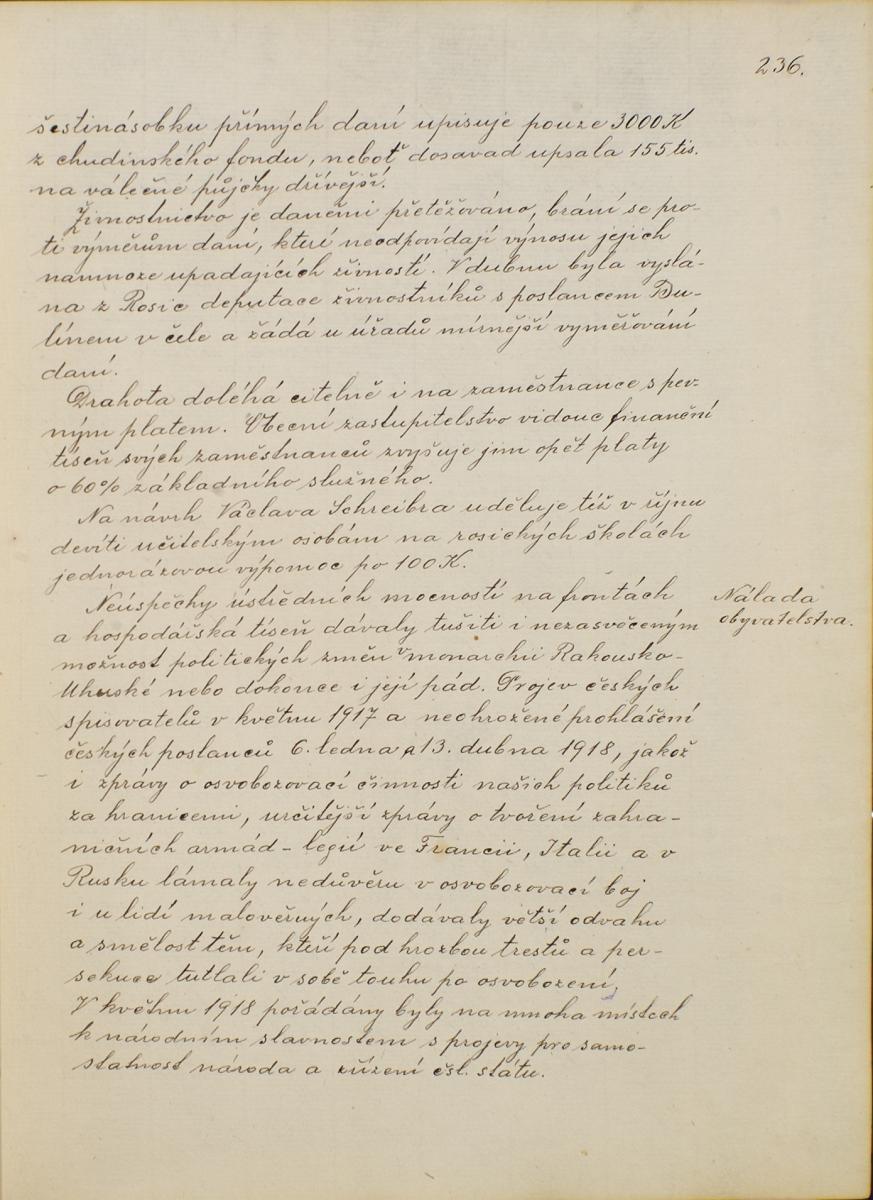 236.
šestinásobku přímých daní upisuje pouze 3000 K
z chudinského fondu, neboť dosavad upsala 155 tis.
na válečné půjčky dřívější.
Živnostnictvo je daněmi přetěžováno, brání se pro-
ti výměrům daní, které neodpovídají výnosu jejich
namnoze upadajících živností. V dubnu byla vyslá-
na z Rosic deputace živnostníků s poslancem Bu-
línem v čele a žádá u úřadů mírnější vyměřování
daní.
Drahota doléhá citelně i na zaměstnance s pev-
ným platem. Obecní zastupitelstvo vidouc finanční
tíseň svých zaměstnanců zvyšuje jim opět platy
o 60% základního služného.
Na návrh Václava Schreibra uděluje též v říjnu
devíti učitelským osobám na rosických školách
jednorázovou výpomoc po 100 K.
Neúspěchy ústředních mocností na frontách
a hospodářská tíseň dávaly tušiti i nezasvěceným
možnost politických změn v monarchii Rakousko-
Uhuské nebo dokonce i její pád. Projev českých
spisovatelů v květnu 1917 a neohrožené prohlášení
českých poslanců 6. ledna a 13. dubna 1918, jakož
i zprávy o osvobozovací činnosti našich politiků
za hranicemi, určitější zprávy o tvoření zahra-
ničních armád - legií ve Francii, Italii a v
Rusku lámaly nedůvěru v osvobozovací boj
i u lidí malověrných, dodávaly větší odvahu
a smělost těm, kteří pod hrozbou trestů a per-
sekuce tutlali v sobě touhu po osvobození,
V květnu 1918 pořádány byly na mnoha místech
k národním slavnostem s projevy pro samo-
statnost národa a zřízení čsl. státu.
Nálada
obyvatelstva.